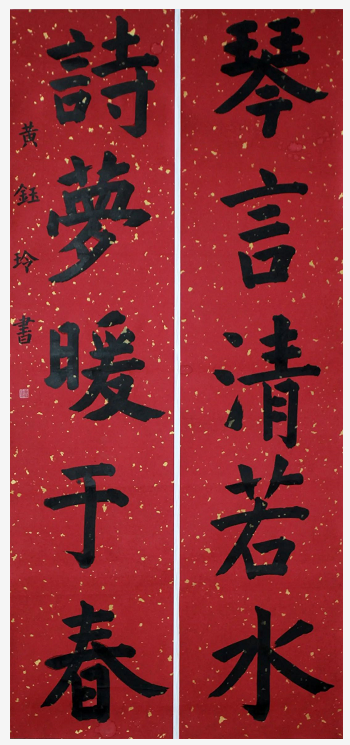 琴言清若水
詩夢暖于春
黃鈺玲書